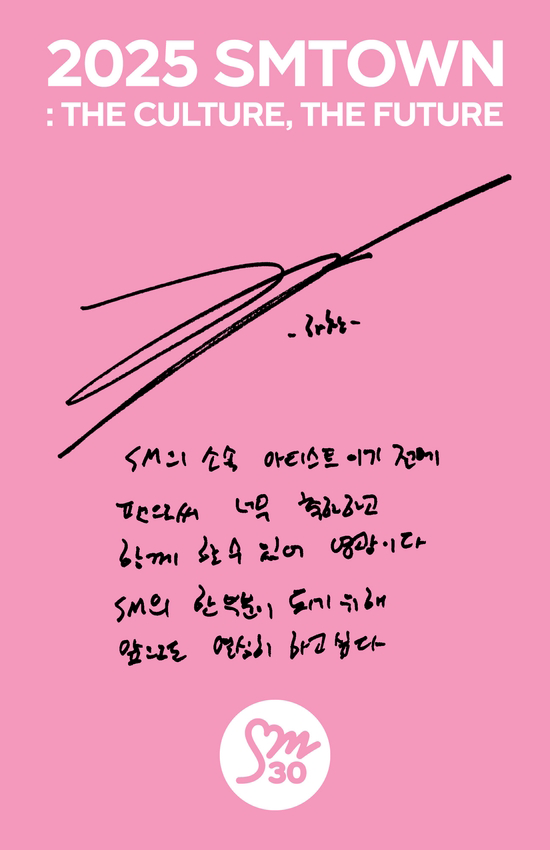 2025 SMTOWN
: THE CULTURE, THE FUTURE
SM의 소속 아티스트이기 전에
팬으로써 너무 축하하고
함께 할 수 있어 영광이다
SM의 한 부분이 되기 위해
앞으로도 열심히 하고 싶다
Sm
30